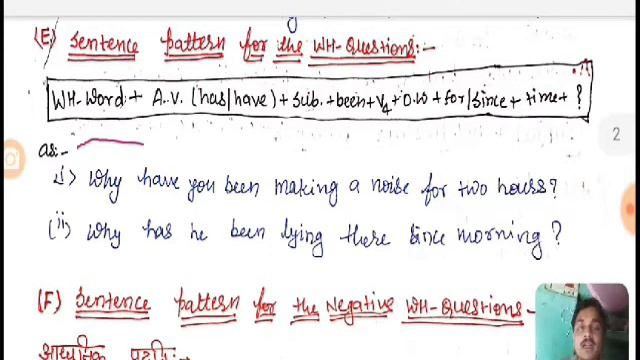 (E) Sentence pattern for the WH-Questions:-
WH-Word + A.V. (has/have) + sub. + been + V4 + O.W + for/since + time + ?
2
as:-
i) Why have you been making a noise for two hours?
(ii) Why has he been lying there since morning?
(F) Sentence pattern for the Negative WH-Questions -
आधुनिक पद्धति:-